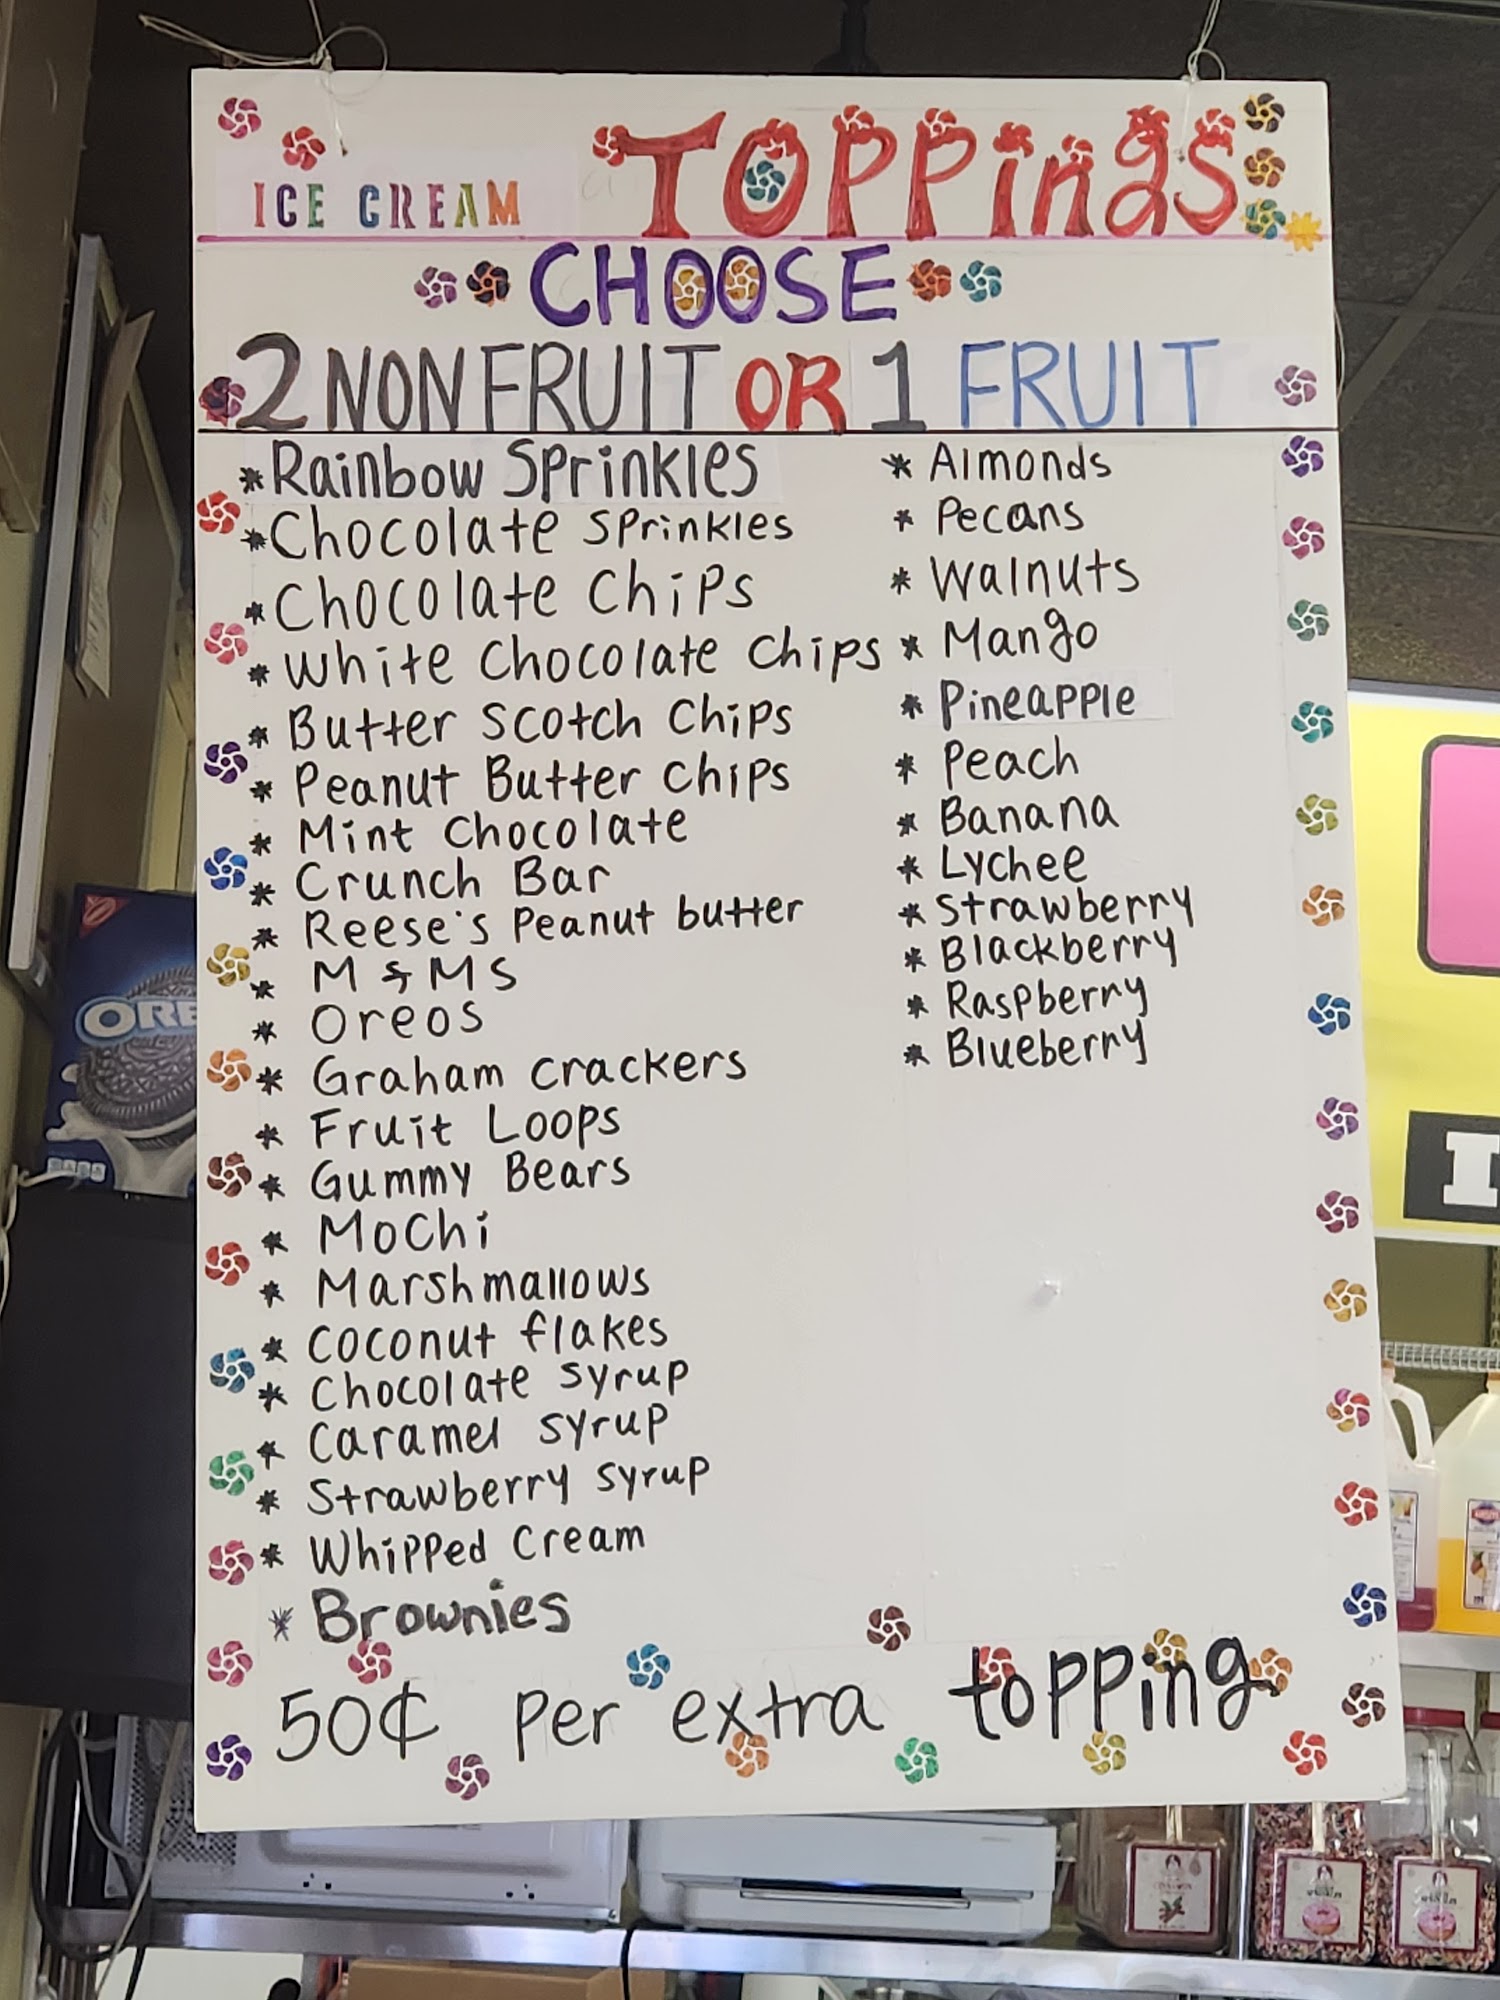 ICE CREAM TOPPings
CHOOSE
2 NON FRUIT OR 1 FRUIT
* Rainbow Sprinkles
* Chocolate sprinkles
* Chocolate Chips
* White Chocolate Chips
* Butter Scotch Chips
* Peanut Butter Chips
* Mint Chocolate
* Crunch Bar
* Reese's Peanut butter
* M & MS
* Oreos
* Graham crackers
* Fruit Loops
* Gummy Bears
* Mochi
* Marshmallows
* Coconut flakes
* Chocolate syrup
* Caramel syrup
* Strawberry syrup
* Whipped Cream
* Brownies
* Almonds
* Pecans
* Walnuts
* Mango
* Pineapple
* Peach
* Banana
* Lychee
* Strawberry
* Blackberry
* Raspberry
* Blueberry
50¢ Per extra topping
ORE
I